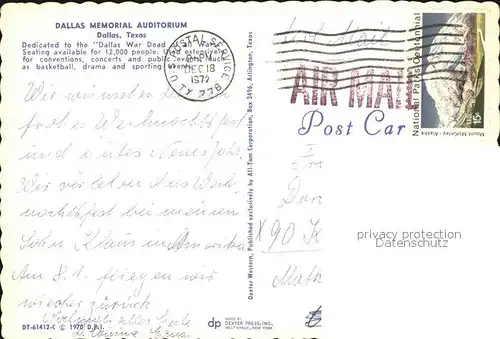 DALLAS MEMORIAL AUDITORIUM
Dallas, Texas
Dedicated to the "Dallas War Dead
Seating available for 12,000 people. Used extensively
for conventions, concerts and public events such
as basketball, drama and sporting events.
U.S. POSTAL SERVICE
DEC 18
1972
TX 778
AIR MAIL
Post Car
National Parks Centennial
Mount McKinley · Alaska
15c
Wir wünschen
frohes Weihnachtsfest
und gutes Neues Jahr.
Wir erleben das Weih-
nachtsfest bei meinem
Sohn Klaus in Amerika
Am 8.1. fliegen wir
wieder zurück
alles Gute
90
privacy protection
watermark
DT-61412-C © 1970 D.P.I.
dp
MADE BY
DEXTER PRESS, INC.
WEST NYACK, NEW YORK
Dexter Western, Published exclusively by All-Tom Corporation, Box 3496, Arlington, Texas